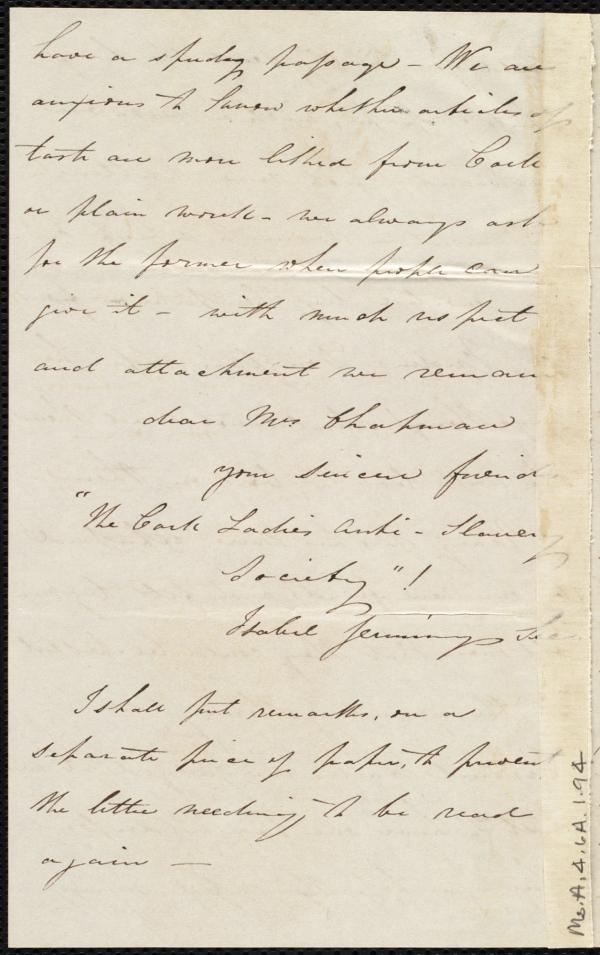 have a speedy passage - We are
anxious to know whether articles of
taste are more liked from Cork
or plain work - we always ask
for the former when people can
give it - with much respect
and attachment we remain
dear Mrs Chapman
your sincere friends
"The Cork Ladies Anti-Slavery
Society"!
Isabel Jennings Sec
I shall put remarks, on a
separate piece of paper, to prevent
the letter needing to be read
again —
Ms.A.4.6A.1.94